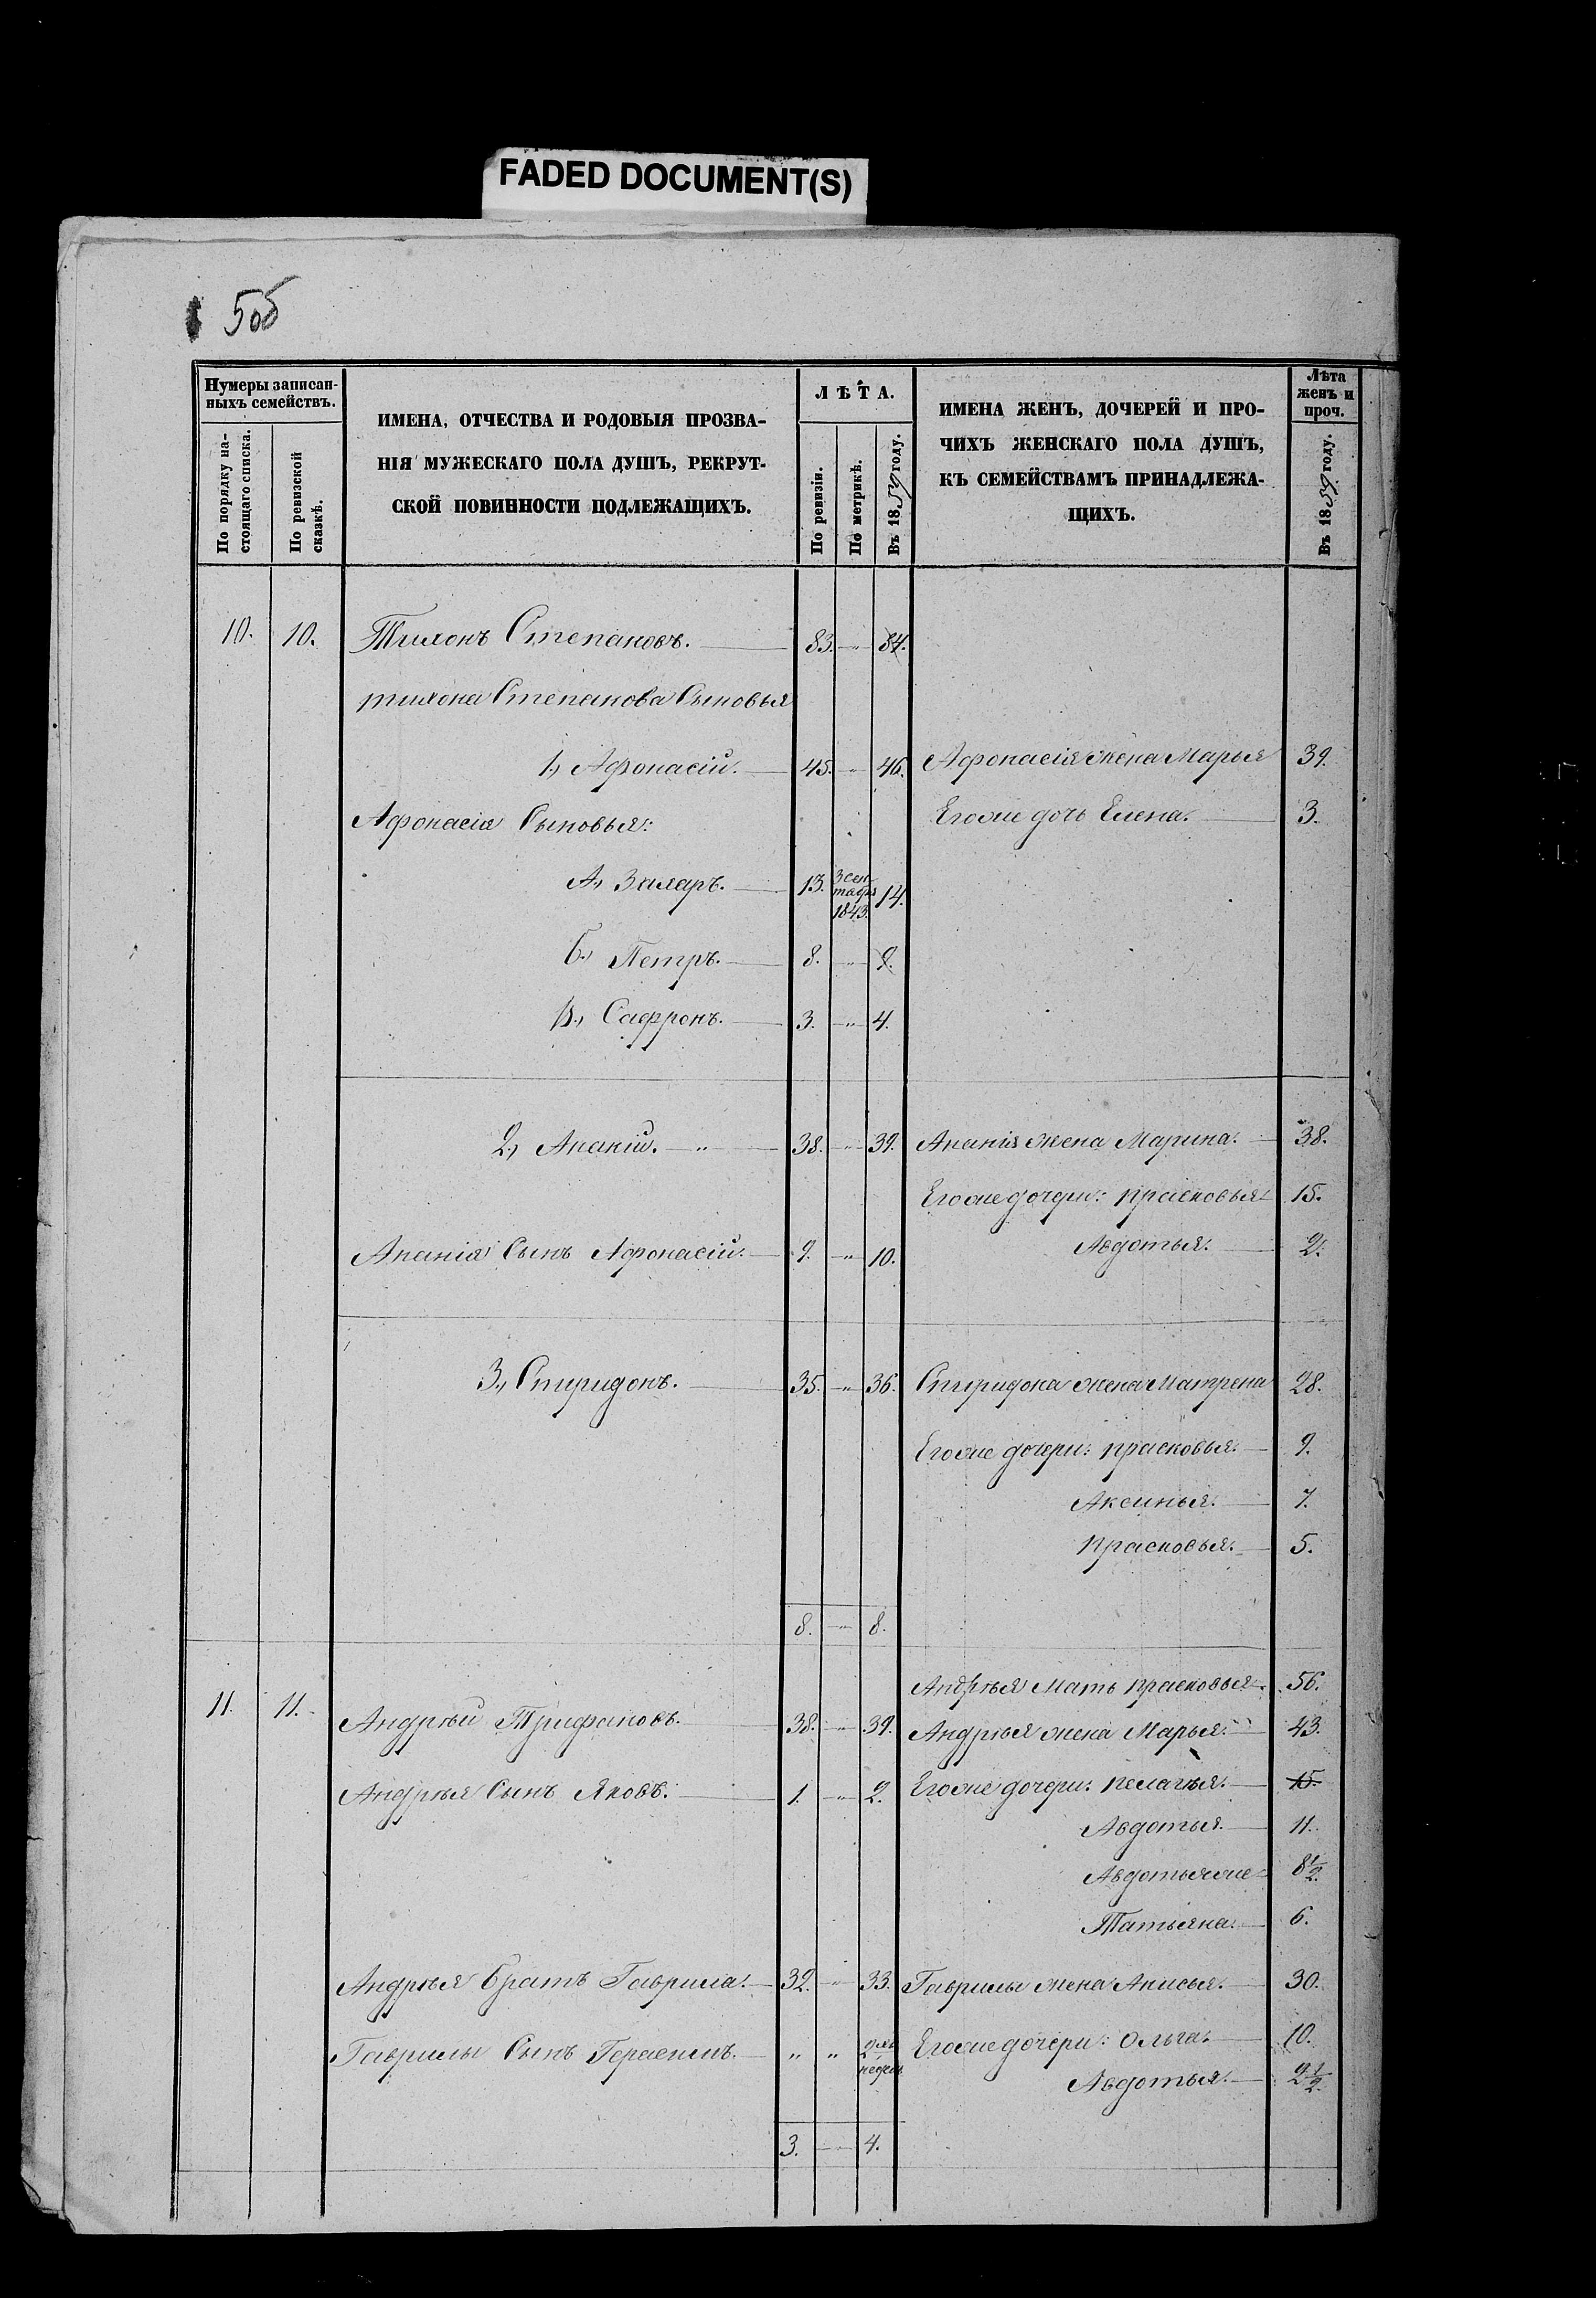 FADED DOCUMENT(S)
5об
Нумеры записан-
ныхъ семействъ.
По порядку на-
стоящаго списка.
По ревизской
сказкѣ.
ИМЕНА, ОТЧЕСТВА И РОДОВЫЯ ПРОЗВА-
НІЯ МУЖЕСКАГО ПОЛА ДУШЪ, РЕКРУТ-
СКОЙ ПОВИННОСТИ ПОДЛЕЖАЩИХЪ.
ЛѢТА.
По ревизіи.
По метрикѣ.
Въ 1859 году.
ИМЕНА ЖЕНЪ, ДОЧЕРЕЙ И ПРО-
ЧИХЪ ЖЕНСКАГО ПОЛА ДУШЪ,
КЪ СЕМЕЙСТВАМЪ ПРИНАДЛЕЖА-
ЩИХЪ.
Лѣта
женъ и
проч.
Въ 1859 году.
10. 10. Тихонъ Степановъ. 83. " 84.
тихона Степанова Сыновья
1., Афонасій. 45. " 46. Афонасія жена Марья 39.
Афонасія Сыновья: Егоже дочь Елена. 3.
А., Захаръ. 13. 3 сен-
тября
1843. 14.
Б., Петръ. 8. " 9.
В., Сафронъ. 3. " 4.
2., Ананій. " 38. " 39. Ананія жена Марина. 38.
Егоже дочери: прасковья 15.
Ананія Сынъ Афонасій. 9. " 10. Авдотья. 2.
3., Спиридонъ. 35. " 36. Спиридона жена Матрена 28.
Егоже дочери: прасковья. 9.
Аксинья. 7.
прасковья. 5.
8. " 8.
Андрѣя Мать прасковья. 56.
11. 11. Андрѣй Трифановъ. 38. " 39. Андрѣя жена Марья. 43.
Андрѣя Сынъ Яковъ. 1. " 2. Егоже дочери: пелагѣя. 15.
Авдотья. 11.
Авдотьяже 8 1/2.
Татьяна. 6.
Андрѣя братъ Гаврила. 32. " 33. Гаврилы жена Анисья. 30.
Гаврилы Сынъ Герасимъ. " " 2
недѣль Егоже дочери: Ольга. 10.
Авдотья. 2 1/2.
3. " 4.